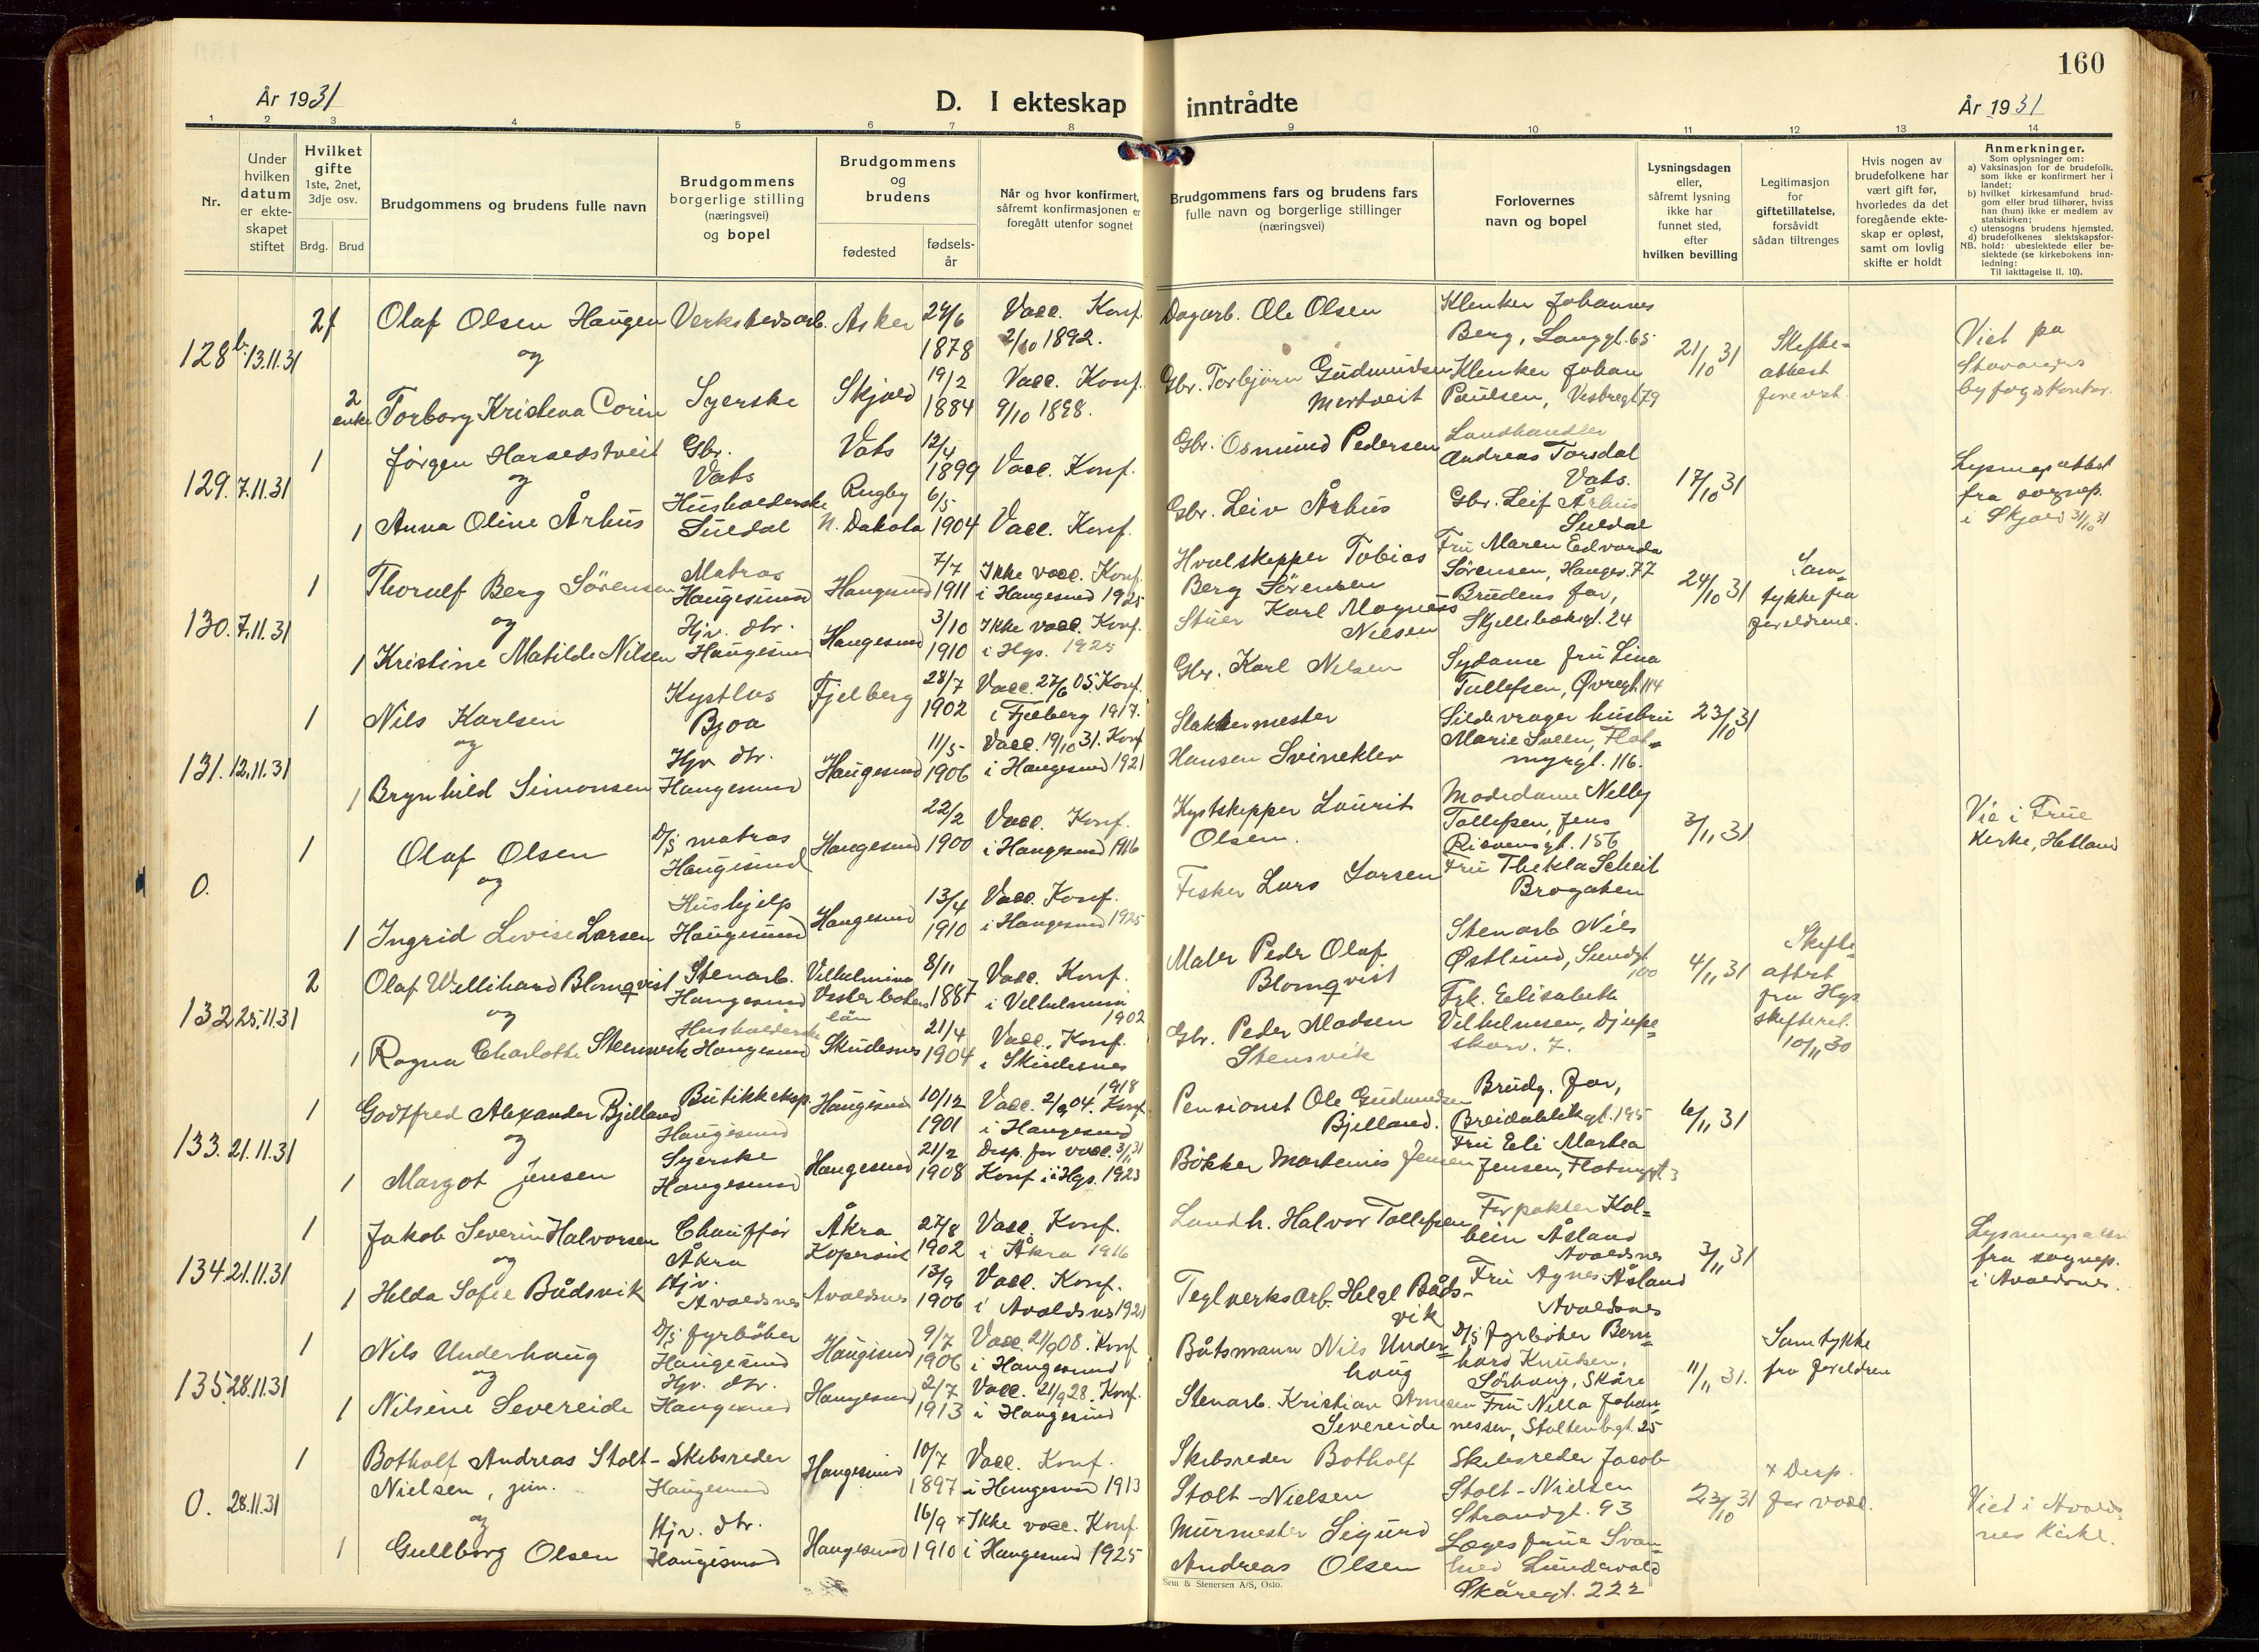 160
År 1931
D. I ekteskap inntrådte
År 1931
1 2 3 4 5 6 7 8 9 10 11 12 13 14
Nr.
Under hvilken datum er ekte-skapet stiftet
Hvilket gifte 1ste, 2net, 3dje osv.
Brdg. Brud
Brudgommens og brudens fulle navn
Brudgommens borgerlige stilling (næringsvei) og bopel
Brudgommens og brudens
fødested
fødsels-år
Når og hvor konfirmert, såfremt konfirmasjonen er foregått utenfor sognet
Brudgommens fars og brudens fars fulle navn og borgerlige stillinger (næringsvei)
Forlovernes navn og bopel
Lysningsdagen eller, såfremt lysning ikke har funnet sted, efter hvilken bevilling
Legitimasjon for giftetillatelse, forsåvidt sådan tiltrenges
Hvis nogen av brudefolkene har vært gift før, hvorledes da det foregående ekte-skap er opløst, samt om lovlig skifte er holdt
Anmerkninger.
Som oplysninger om:
a) Vaksinasjon for de brudefolk, som ikke er konfirmert her i landet;
b) hvilket kirkesamfund brud-gom eller brud tilhører, hviss han (hun) ikke er medlem av statskirken;
c) utensogns brudens hjemsted.
d) brudefolkenes slektskapsfor-hold: ubeslektede eller be-slektede (se kirkebokens inn-ledning:
NB.
Til iakttagelse II. 10).
128b. 13.11.31
2f Olaf Olsen Haugen Verkstedsarb. Asker 24/6 1878 Vacc. Konf. 2/10 1892.
Dagarb. Ole Olsen
Klenker Johannes Berg, Langgt. 65
21/10 31
Skifte-attest
Viet på Stavanger byfogdkontor.
og
2 enke Torborg Kristena Corin Syerske Skjold 19/2 1884 Vacc. Konf. 9/10 1898.
Gbr. Torbjørn Gudmundsen
Klenker Johan Paulsen, Vestregt 79
129. 7.11.31
1 Jørgen Gbr. Vats Vats 12/4 1899 Vacc. Konf.
Gbr. Osmund Pedersen
Landhandler Andreas Torsdal Vats.
17/10 31
Lysningsattest fra sognep. i Skjold 31/10 31
og
1 Anna Oline Århus Husholderske Suldal Rugby N. Dakota 6/5 1904 Vacc. Konf.
Gbr. Leiv Århus
Gbr. Leif Århus Suldal
130. 7.11.31
1 Thorulf Berg Sørensen Matros Haugesund Haugesund 7/7 1911 Ikke vacc. Konf. i Haugesund 1925
Hvalskipper Tobias Berg Sørensen
Fru Maren Edvarda Sørensen, Hauges. 77
24/10 31
Samtykke fra foreldrene.
og
1 Kristine Matilde Nilsen Hjv. dtr. Haugesund Haugesund 3/10 1910 Ikke vacc. Konf. i Hgs. 1925
Stuer Karl Magnus Nilsen
Brudens far, Skjoldbakgt. 24
131. 12.11.31
1 Nils Karlsen Kystlos Bjoa Fjelberg 28/7 1902 Vacc. 27/6 05. Konf. i Fjelberg 1917.
Gbr. Karl Nilsen
Sydame fru Lina Tollefsen, Øvregt. 114
23/10 31
og
1 Brynhild Simonsen Hjv. dtr. Haugesund Haugesund 11/5 1906 Vacc. 19/10 31. Konf i Haugesund 1921
Slaktermester Hansen Svineklev
Sildevrager husbru Marie Sveen, Flot-myrgt. 116.
0.
1 Olaf Olsen D/S matros Haugesund Haugesund 22/2 1900 Vacc. Konf. i Haugesund 1916
Kystskipper Laurit Olsen.
Modedame Nelly Tollefsen, Jens Risvensgt. 156
3/11 31
Vie i Frue Kirke, Hetland
og
1 Ingrid Lovise Larsen Hushjelp Haugesund Haugesund 13/4 1910 Vacc. Konf. i Haugesund 1925
Fisker Lars Larsen
Fru Thekla
132 25.11.31
2 Olaf Willihard Blomqvist Stenarb. Haugesund Vilhelmina Vesterbotens län 8/11 1887 Vacc. Konf. i Vilhelmina 1902
Maler Peder Olaf Blomqvist
Stenarb Nils Østlund, Sundgt. 100
4/11 31
Skifte-attest fra Hgs skifteret. 10/11 30
og
1 Ragna Charlotte Stensvik Husholderske Haugesund Skudesnes 21/4 1904 Vacc. Konf. i Skudesnes 1918
Gbr. Peder Madsen Stensvik
Frk. Elisabeth Vilhelmsen, Djupaskarv. 7.
133. 21.11.31
1 Godtfred Alexander Bjelland Butikkeksp. Haugesund Haugesund 10/12 1901 Vacc. 2/9 04. Konf. i Haugesund
Pensionist Ole Gudmundsen Bjelland.
Brudg. far, Breidablikgt. 195
6/11 31
og
1 Margot Jensen Syerske Haugesund Haugesund 21/2 1908 Disp. for vacc. 3/11 31 Konf i Hgs. 1923
Bøkker Martenius Jensen
Fru Eli Martea Jensen, Flotmyrgt. 3
134. 21.11.31
1 Jakob Severin Halvorsen Chauffør Åkra Åkra Kopervik 27/8 1902 Vacc. Konf. i Åkra 1916
Landh. Halvor Tollefsen
Forpakter Kol-bein Åsland Avaldsnes
3/11 31
Lysningsattest fra sognep. i Avaldsnes.
og
1 Helda Sofie Bådsvik Hjv. Avaldsnes Avaldsnes 13/9 1906 Vacc. Konf. i Avaldsnes 1921
Teglverksarb. Helgl Båds-vik
Fru Agnes Åsland Avaldsnes
135. 28.11.31
1 Nils Underhaug D/S fyrbøter Haugesund Haugesund 9/7 1906 Vacc. 21/9 08. Konf i Haugesund
Båtsmann Nils Under-haug
D/S fyrbøter Bern-hard Knutsen, Sørhaug, Skåre
11/11 31.
Samtykke fra foreldren
og
1 Nilsine Severeide Hjv. dtr. Haugesund Haugesund 2/7 1913 Vacc. 21/9 28. Konf. i Haugesund
Stenarb. Kristian Arnesen Severeide
Fru Nilla Johan-nessen, Stoltenbgt. 25
0. 28.11.31
1 Botholf Andreas Stolt-Nielsen, jun. Skibsreder Haugesund Haugesund 10/7 1897 Vacc. Konf. i Haugesund 1913
Skibsreder Botholf Stolt-Nielsen
Skibsreder Jacob Stolt-Nielsen Strandgt. 93
23/10 31
x Disp. for vacc.
Viet i Avalds-nes Kirke.
og
1 Gullborg Olsen Hjv. dtr. Haugesund Haugesund 16/9 1910 x Ikke vacc. Konf. i Haugesund 1925
Murmester Sigurd Andreas Olsen
Lægefrue Svan-hild Lundevold Skåregt. 222
Sem & Stenersen A/S, Oslo.